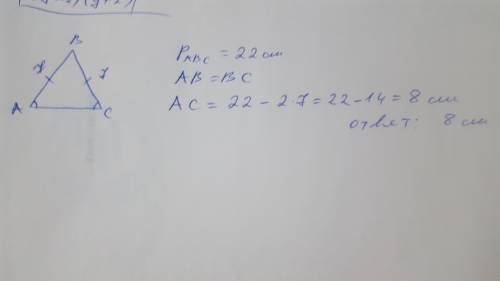 B
7 7
A C
P ABC = 22 см
AB = BC
AC = 22 - 2·7 = 22 - 14 = 8 см
ответ: 8 см